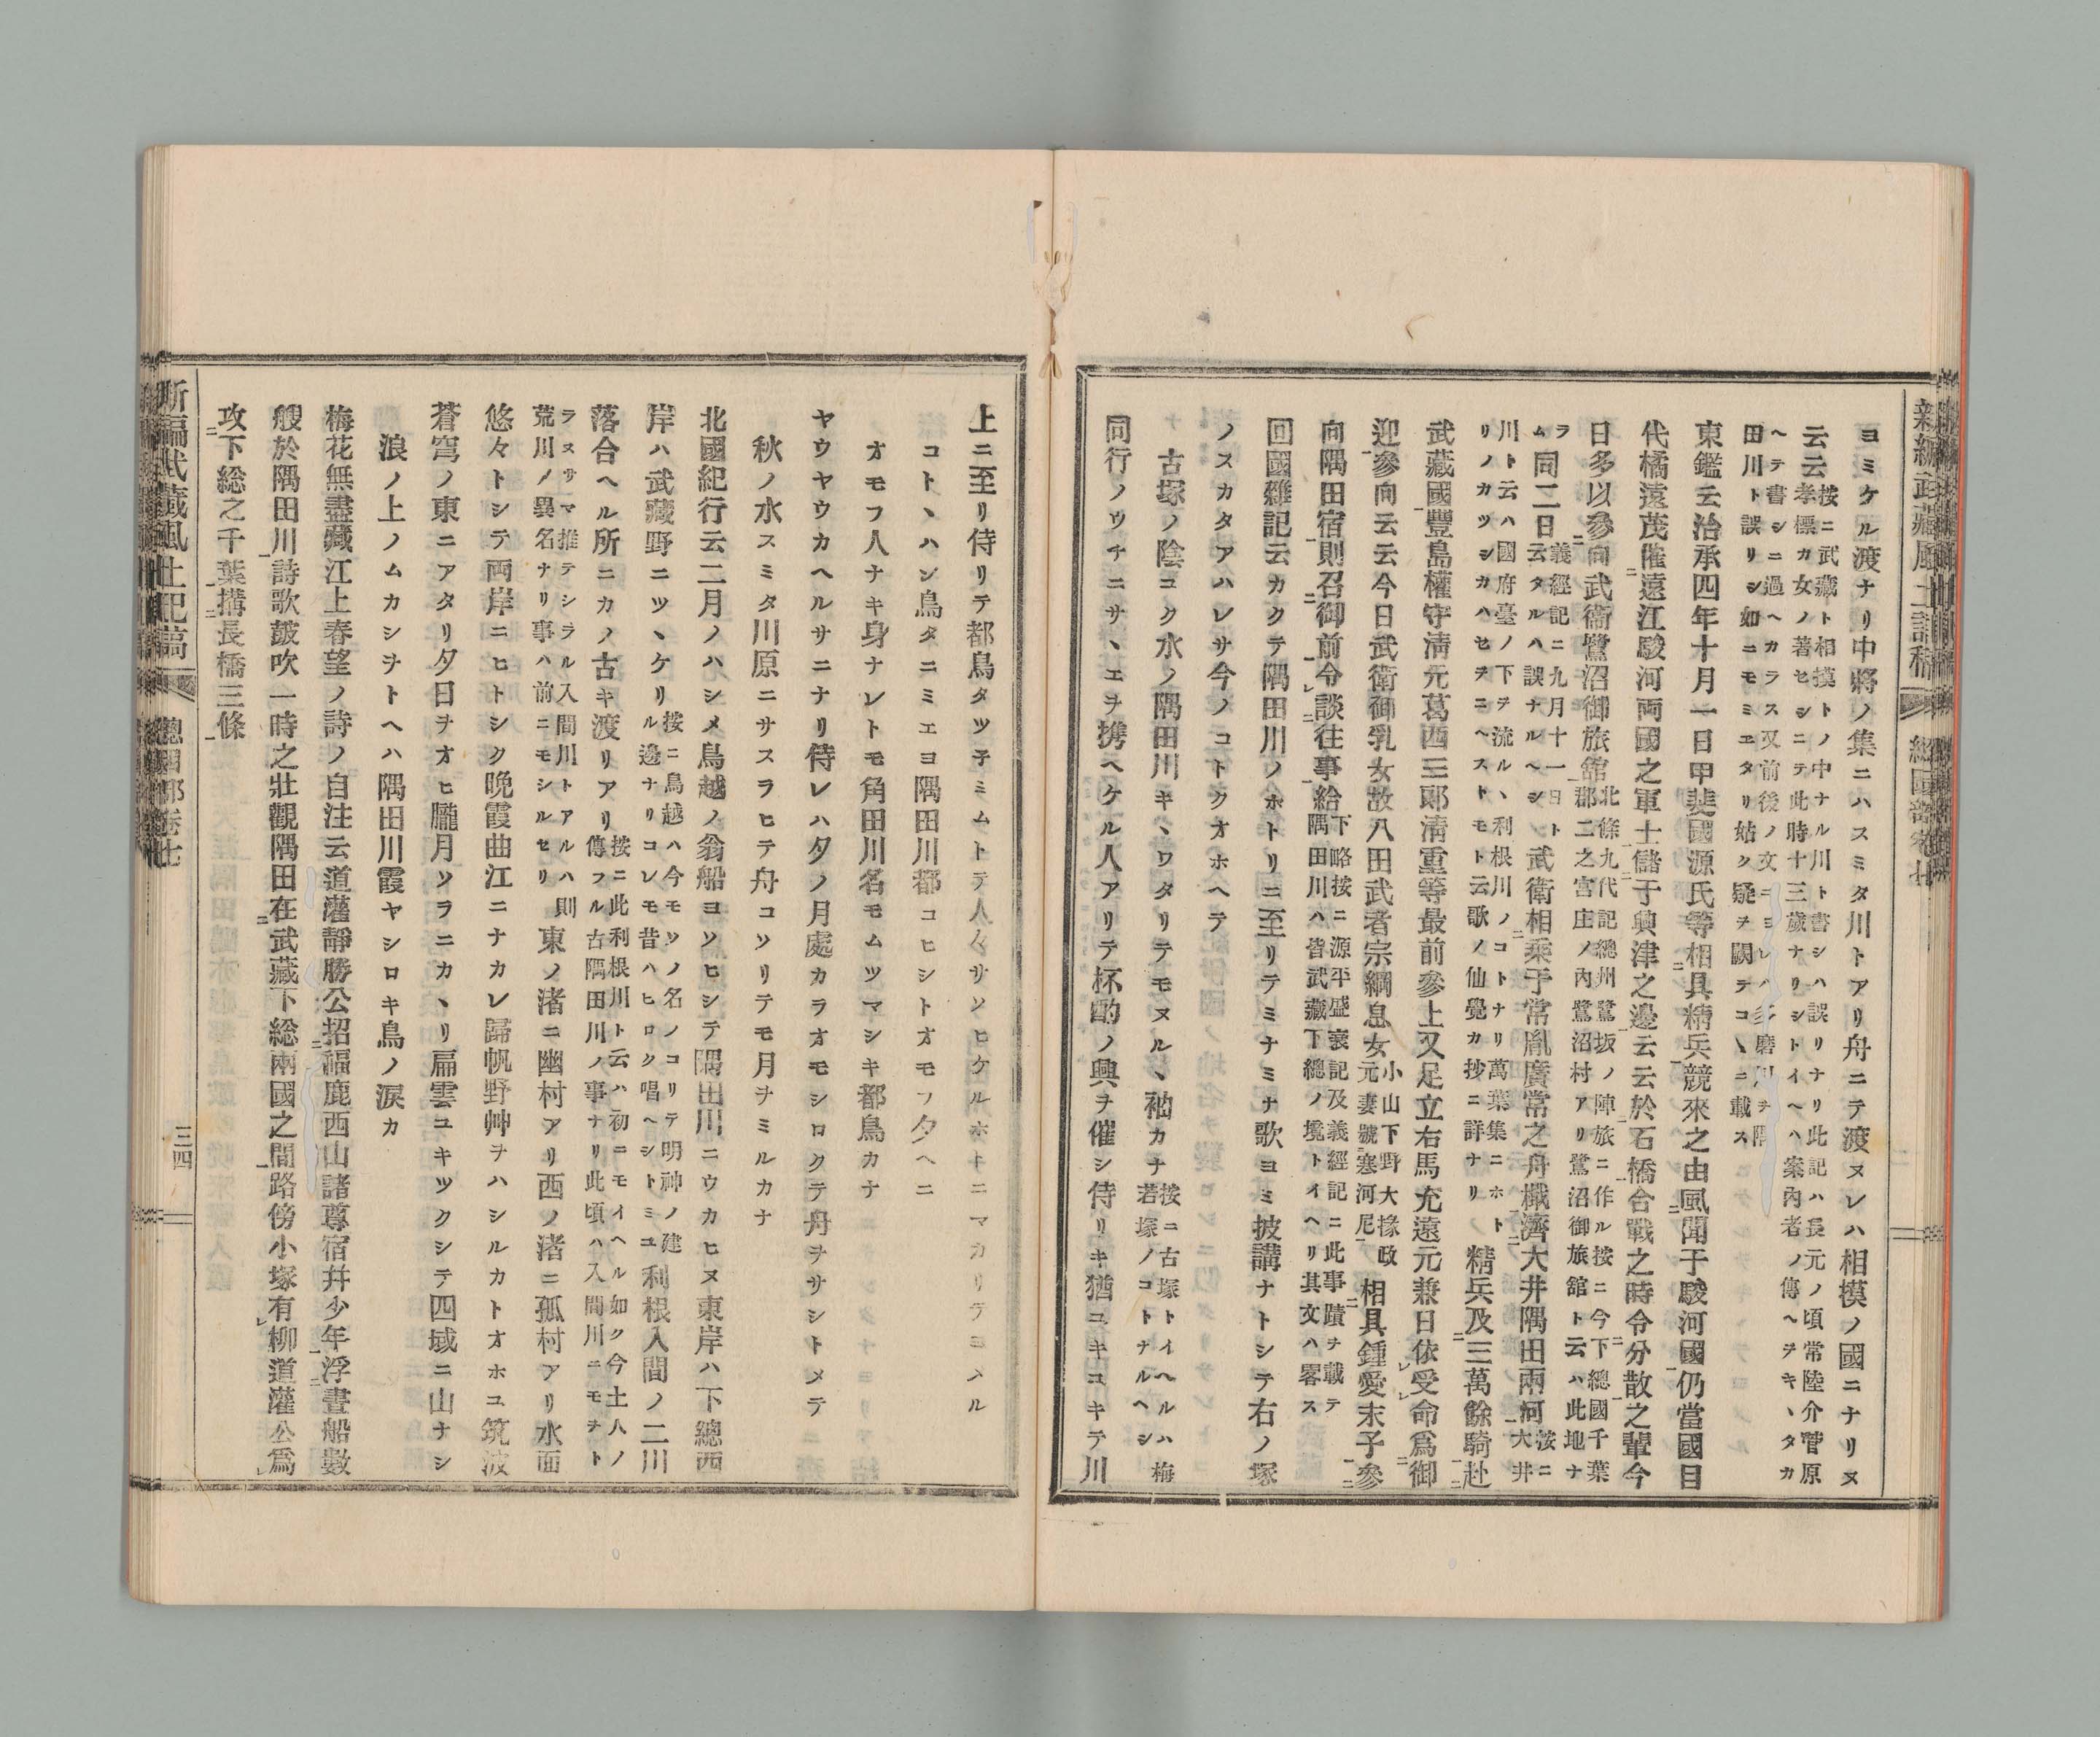 ヨミケル渡ナリ中將ノ集ニハスミタ川トアリ舟ニテ渡ヌレハ相摸ノ國ニナリヌ
云云按ニ武藏ト相摸トノ中ナル川ト書シハ誤リナリ此記ハ長元ノ頃常陸介菅原
孝標カ女ノ著セシニテ此時十三歲ナリシトイヘハ案內者ノ傳ヘヲキヽタカ
ヘテ書シニ過ヘカラス又前後ノ文ニヨレハ多磨川ヲ隅
田川ト誤リシ如ニモミエタリ姑ク疑ヲ闕テコヽニ載ス
東鑑云治承四年十月一日甲斐國源氏等相具精兵競來之由風聞于駿河國仍當國目
代橘遠茂催遠江駿河両國之軍士儲于興津之邊云云於石橋合戰之時令分散之輩今
日多以參向武衞鷺沼御旅舘北條九代記總州鷺坂ノ陣旅ニ作ル按ニ今下總國千葉
郡二之宮庄ノ內鷺沼村アリ鷺沼御旅舘ト云ハ此地ナ
ラム同二日義經記ニ九月十一日ト
云タルハ誤ナルヘシ武衛相乘于常胤廣常之舟檝濟大井隅田兩河按ニ
大井
川ト云ハ國府臺ノ下ヲ流ルヽ利根川ノコトナリ萬葉集ニホト
リノカツシカハセヲニヘストモト云歌ノ仙覺カ抄ニ詳ナリ精兵及三萬餘騎赴
武藏國豐島權守淸元葛西三郞淸重等最前參上又足立右馬充遠元兼日依受命爲御
迎參向云云今日武衛御乳女故八田武者宗綱息女小山下野大掾政
元妻號寒河尼相具鍾愛末子參
向隅田宿則召御前令談往事給下略按ニ源平盛衰記及義經記ニ此事蹟ヲ載テ
隅田川ハ皆武藏下總ノ境トイヘリ其文ハ畧ス
回國雜記云カクテ隅田川ノホトリニ至リテミナミナ歌ヨミ披講ナトシテ右ノ塚
ノスカタアハレサ今ノコトクオホヘテ
古塚ノ陰コク水ノ隅田川キヽワタリテモヌルヽ袖カナ按ニ古塚トイヘルハ梅
若塚ノコトナルヘシ
同行ノウチニサヽエヲ携ヘケル人アリテ杯酌ノ興ヲ催シ侍リキ猶ユキユキテ川
上ニ至リ侍リテ都鳥タツ子ミムトテ人々サソヒケルホトニマカリテヨメル
コトヽハン鳥タニミエヨ隅田川都コヒシトオモフタヘニ
オモフ人ナキ身ナレトモ角田川名モムツマシキ都鳥カナ
ヤウヤウカヘルサニナリ侍レハタノ月處カラオモシロクテ舟ヲサシトメテ
秋ノ水スミタ川原ニサスラヒテ舟コソリテモ月ヲミルカナ
北國紀行云二月ノハシメ鳥越ノ翁船ヨソヒシテ隅田川ニウカヒヌ東岸ハ下總西
岸ハ武藏野ニツヽケリ按ニ鳥越ハ今モソノ名ノコリテ明神ノ建
ル邊ナリコレモ昔ハヒロク唱ヘシトミユ利根入間ノ二川
落合ヘル所ニカノ古キ渡リアリ按ニ此利根川ト云ハ初ニモイヘル如ク今土人ノ
傳フル古隅田川ノ事ナリ此頃ハ入間川ニモチト
ラヌサマ推テシラル入間川トアルハ則
荒川ノ異名ナリ事ハ前ニモシルセリ東ノ渚ニ幽村アリ西ノ渚ニ孤村アリ水面
悠々トシテ両岸ニヒトシク晩霞曲江ニナカレ歸帆野艸ヲハシルカトオホユ筑波
蒼穹ノ東ニアタリ夕日ヲオヒ朧月ソラニカヽリ扁雲ユキツクシテ四域ニ山ナシ
浪ノ上ノムカシヲトヘハ隅田川霞ヤシロキ鳥ノ淚カ
梅花無盡藏江上春望ノ詩ノ自注云道灌靜勝公招福鹿西山諸尊宿幷少年浮畫船數
艘於隅田川詩歌皷吹一時之壯觀隅田在武藏下総兩國之間路傍小塚有柳道灌公爲
攻下総之千葉搆長橋三條
新編武藏風土記稿
三四